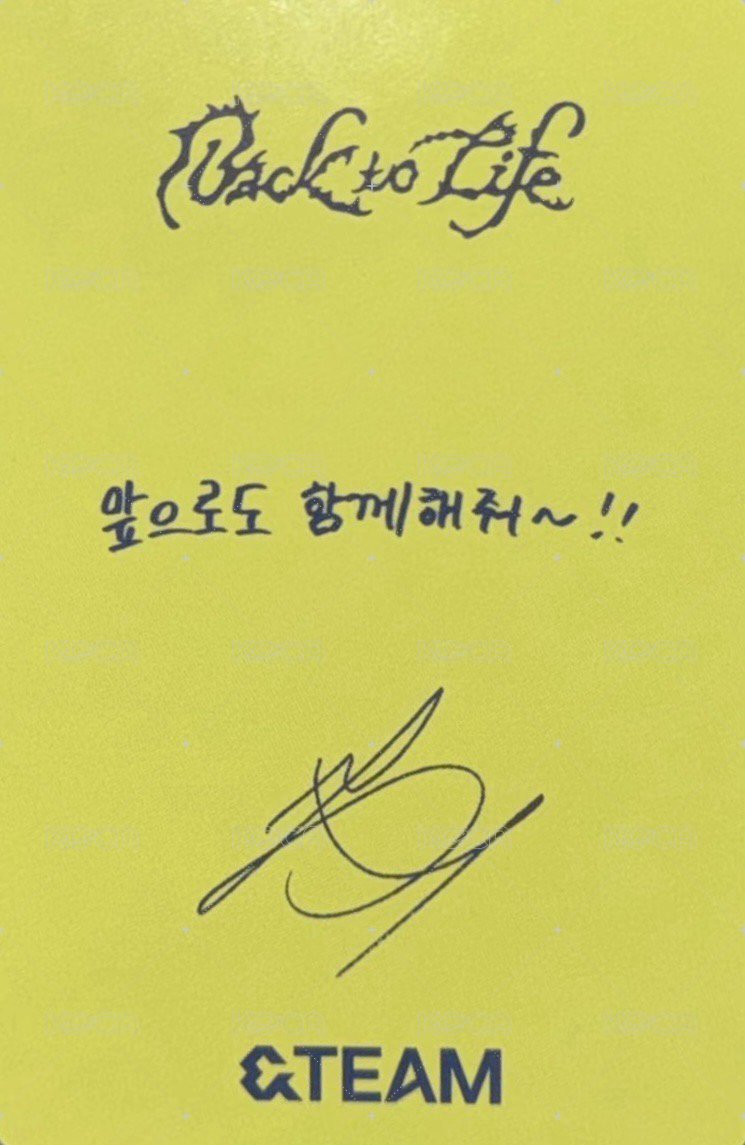 Back to Life
앞으로도 함께해줘~!!
&TEAM